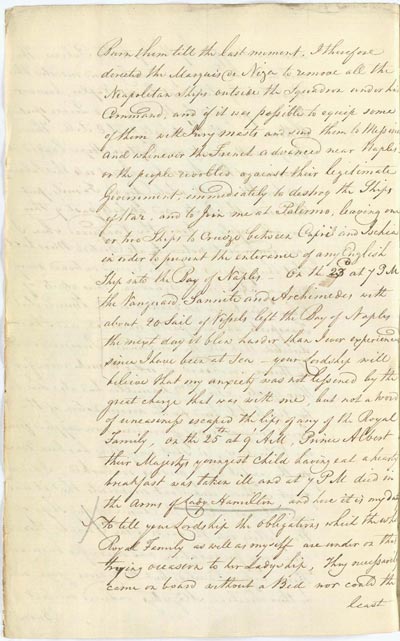 Burn them till the last moment. I therefore
directed the Marquis de Niza to remove all the
Neapolitan Ships outside the Squadron under his
Command, and if it was possible to equip some
of them with Jury masts and send them to Messina
and whenever the French advanced near Naples
or the people revolted against their legitimate
Government, immediately to destroy the Ships
of War, and to Join me at Palermo, leaving one
or two Ships to Cruize between Capri and Ischia
in order to prevent the entrance of any English
Ship into the Bay of Naples. On the 23d at 7 PM
the Vanguard Sannite and Archimedes with
about 20 Sail of Vessels left the Bay of Naples
the next day it blew harder than I ever experienced
since I have been at Sea – your Lordship will
believe that my anxiety was not lessened by the
great charge that was with me, but not a word
of uneasiness escaped the lips of any of the Royal
Family. On the 25th at 9 AM Prince Albert
their Majestys youngest Child having eat a hearty
breakfast was taken ill and at 7 PM died in
the arms of Lady Hamilton, and here it is my duty
X to tell your Lordship the obligations which the whole
Royal Family as well as myself are under on this
trying occasion to her Ladyship, They necessarily
came on board without a Bed nor could the
least